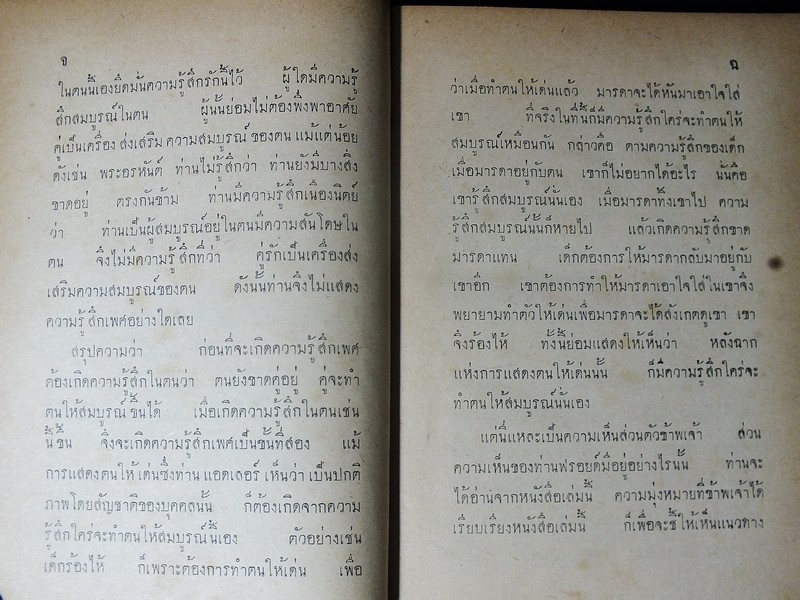 จ
ในตนนี้เองยึดมั่นความรู้สึกรักนี้ไว้ ผู้ใดมีความรู้
สึกสมบูรณ์ในตน ผู้นั้นย่อมไม่ต้องพึ่งพาอาศัย
คู่เป็นเครื่อง ส่งเสริม ความสมบูรณ์ ของตน แม้แต่น้อย
ดังเช่น พระอรหันต์ ท่านไม่รู้สึกว่า ท่านยังมีบางสิ่ง
ขาดอยู่ ตรงกันข้าม ท่านมีความรู้สึกเนื่องนิตย์
ว่า ท่านเป็นผู้สมบูรณ์อยู่ในตนมีความสันโดษใน
ตน จึงไม่มีความรู้สึกที่ว่า คู่รักเป็นเครื่องส่ง
เสริมความสมบูรณ์ของตน ดังนั้นท่านจึงไม่แสดง
ความรู้สึกเพศอย่างใดเลย
สรุปความว่า ก่อนที่จะเกิดความรู้สึกเพศ
ต้องเกิดความรู้สึกในตนว่า ตนยังขาดคู่อยู่ คู่จะทำ
ตนให้สมบูรณ์ขึ้นได้ เมื่อเกิดความรู้สึกในตนเช่น
นี้ขึ้น จึงจะเกิดความรู้สึกเพศเป็นขั้นที่สอง แม้
การแสดงตนให้ เด่นซึ่งท่าน แอดเลอร์ เห็นว่า เป็นปกติ
ภาพโดยสัญชาติของบุคคลนั้น ก็ต้องเกิดจากความ
รู้สึกใคร่จะทำตนให้สมบูรณ์นี้เอง ตัวอย่างเช่น
เด็กร้องไห้ ก็เพราะต้องการทำตนให้เด่น เพื่อ
ฉ
ว่าเมื่อทำตนให้เด่นแล้ว มารดาจะได้หันมาเอาใจใส่
เขา ที่จริงในที่นี้ก็มีความรู้สึกใคร่จะทำตนให้
สมบูรณ์เหมือนกัน กล่าวคือ ตามความรู้สึกของเด็ก
เมื่อมารดาอยู่กับตน เขาก็ไม่อยากได้อะไร นั่นคือ
เขารู้สึกสมบูรณ์นั่นเอง เมื่อมารดาทิ้งเขาไป ความ
รู้สึกสมบูรณ์นั้นก็หายไป แล้วเกิดความรู้สึกขาด
มารดาแทน เด็กต้องการให้มารดากลับมาอยู่กับ
เขาอีก เขาต้องการทำให้มารดาเอาใจใส่ในเขาจึง
พยายามทำตัวให้เด่นเพื่อมารดาจะได้สังเกตดูเขา เขา
จึงร้องไห้ ทั้งนี้ย่อมแสดงให้เห็นว่า หลังฉาก
แห่งการแสดงตนให้เด่นนั้น ก็มีความรู้สึกใคร่จะ
ทำตนให้สมบูรณ์นั่นเอง
แต่นี่แหละเป็นความเห็นส่วนตัวข้าพเจ้า ส่วน
ความเห็นของท่านฟรอยด์มีอยู่อย่างไรนั้น ท่านจะ
ได้อ่านจากหนังสือเล่มนี้ ความมุ่งหมายที่ข้าพเจ้าได้
เรียบเรียงหนังสือเล่มนี้ ก็เพื่อจะชี้ให้เห็นแนวทาง